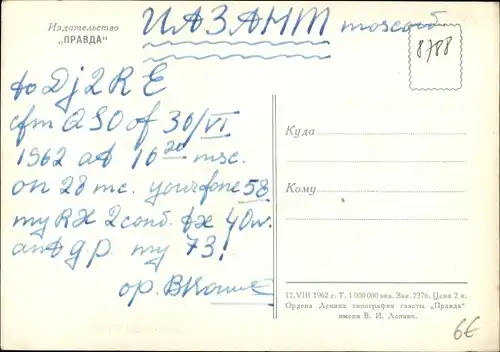 Издательство
„ПРАВДА“
UA3AHT moscow
8788
to Dj2RE
cfm QSO of 30/VI
1962 at 16 20 msc.
on 28 mc. your fone 58
my RX 2 conv. tx 40w.
ant g.p. my 73!
op.
Куда
Кому
12.VIII 1962 г. Т. 1 000 000 экз. Зак. 2376. Цена 2 к.
Ордена Ленина типография газеты „Правда“
имени В. И. Ленина.
6€